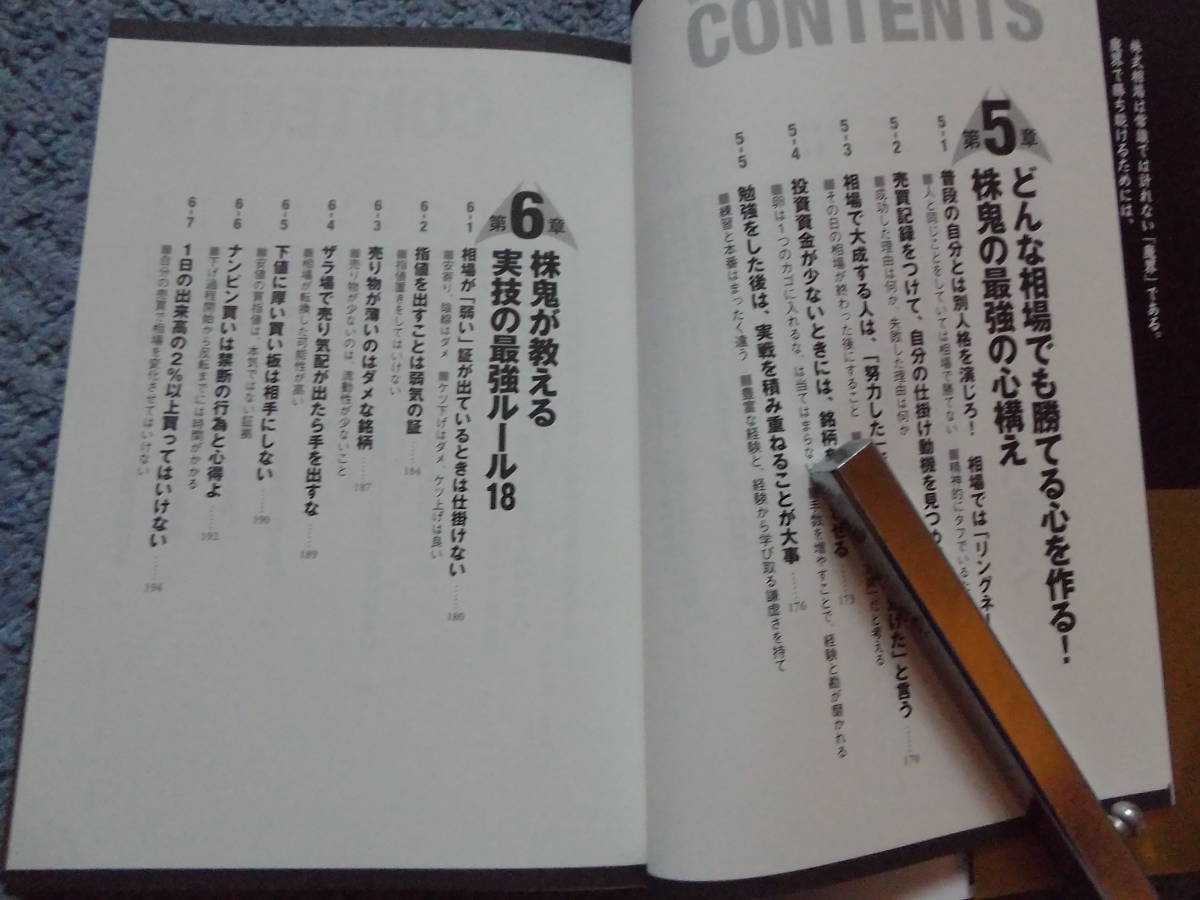 株式相場は常識では計れない「魔界」である。
魔界で勝ち続けるためには、
CONTENTS
第5章
どんな相場でも勝てる心を作る!
株鬼の最強の心構え
5-1 普段の自分とは別人格を演じろ! 相場では「リングネー
■人と同じことをしていては相場で勝てない ■精神的にタフでいるた
5-2 売買記録をつけて、自分の仕掛け動機を見つめ
■成功した理由は何か、失敗した理由は何か
5-3 相場で大成する人は、「努力した」 げた」と言う ……170
■その日の相場が終わった後にすること だと考える
5-4 投資資金が少ないときには、銘柄を せる ……173
■卵は1つのカゴに入れるな、は当てはまらな ■手数を増やすことで、経験と勘が磨かれる
5-5 勉強をした後は、実戦を積み重ねることが大事 ……176
■練習と本番はまったく違う ■豊富な経験と、経験から学び取る謙虚さを持て
第6章
株鬼が教える
実技の最強ルール18
6-1 相場が「弱い」証が出ているときは仕掛けない ……180
■安寄り、陰線はダメ ■ケツ下げはダメ、ケツ上げは良い
6-2 指値を出すことは弱気の証 ……184
■指値置きをしてはいけない
6-3 売り物が薄いのはダメな銘柄 ……187
■売り物が少ないのは、流動性が少ないこと
6-4 ザラ場で売り気配が出たら手を出すな ……189
■相場が転換した可能性が高い
6-5 下値に厚い買い板は相手にしない ……190
■安値の買指値は、本気ではない証拠
6-6 ナンピン買いは禁断の行為と心得よ ……192
■下げ過程開始から反転までには時間がかかる
6-7 1日の出来高の2%以上買ってはいけない ……194
■自分の売買で相場を変化させてはいけない